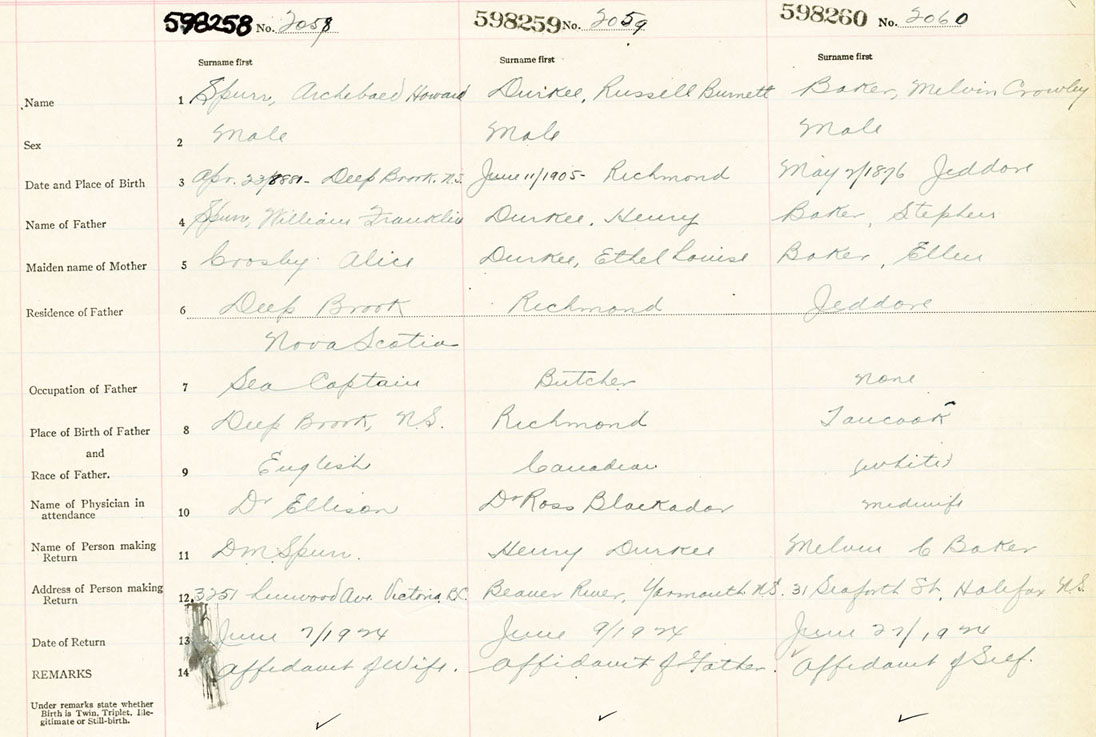 598258 No. 2058 598259 No. 2059 598260 No. 2060
Surname first Surname first Surname first
Name 1 Spurr, Archebald Howard Durkee, Russell Burnett Baker, Melvin Crowley
Sex 2 Male Male Male
Date and Place of Birth 3 Apr. 23/1881- Deep Brook. N.S. June 11/1905- Richmond May 2/1876 Jeddore
Name of Father 4 Spurr, William Franklin Durkee, Henry Baker, Stephen
Maiden name of Mother 5 Crosby Alice Durkee, Ethel Louise Baker, Ellen
Residence of Father 6 Deep Brook Richmond Jeddore
Nova Scotia
Occupation of Father 7 Sea Captain Butcher none
Place of Birth of Father 8 Deep Brook, N.S. Richmond Tancook
and
Race of Father. 9 English Canadian (white)
Name of Physician in attendance 10 Dr Ellison Dr Ross Blackadar midwife
Name of Person making Return 11 D M Spurr. Henry Durkee Melvin C Baker
Address of Person making Return 12 3251 Linwood Ave. Victoria B.C. Beaver River, Yarmouth N.S. 31 Seaforth St, Halifax N.S.
Date of Return 13 June 7/1924 June 9/1924 June 27/1924
REMARKS 14 Affidavit of Wife. Affidavit of Father. Affidavit of Self.
Under remarks state whether
Birth is Twin, Triplet, Ille-
gitimate or Still-birth.